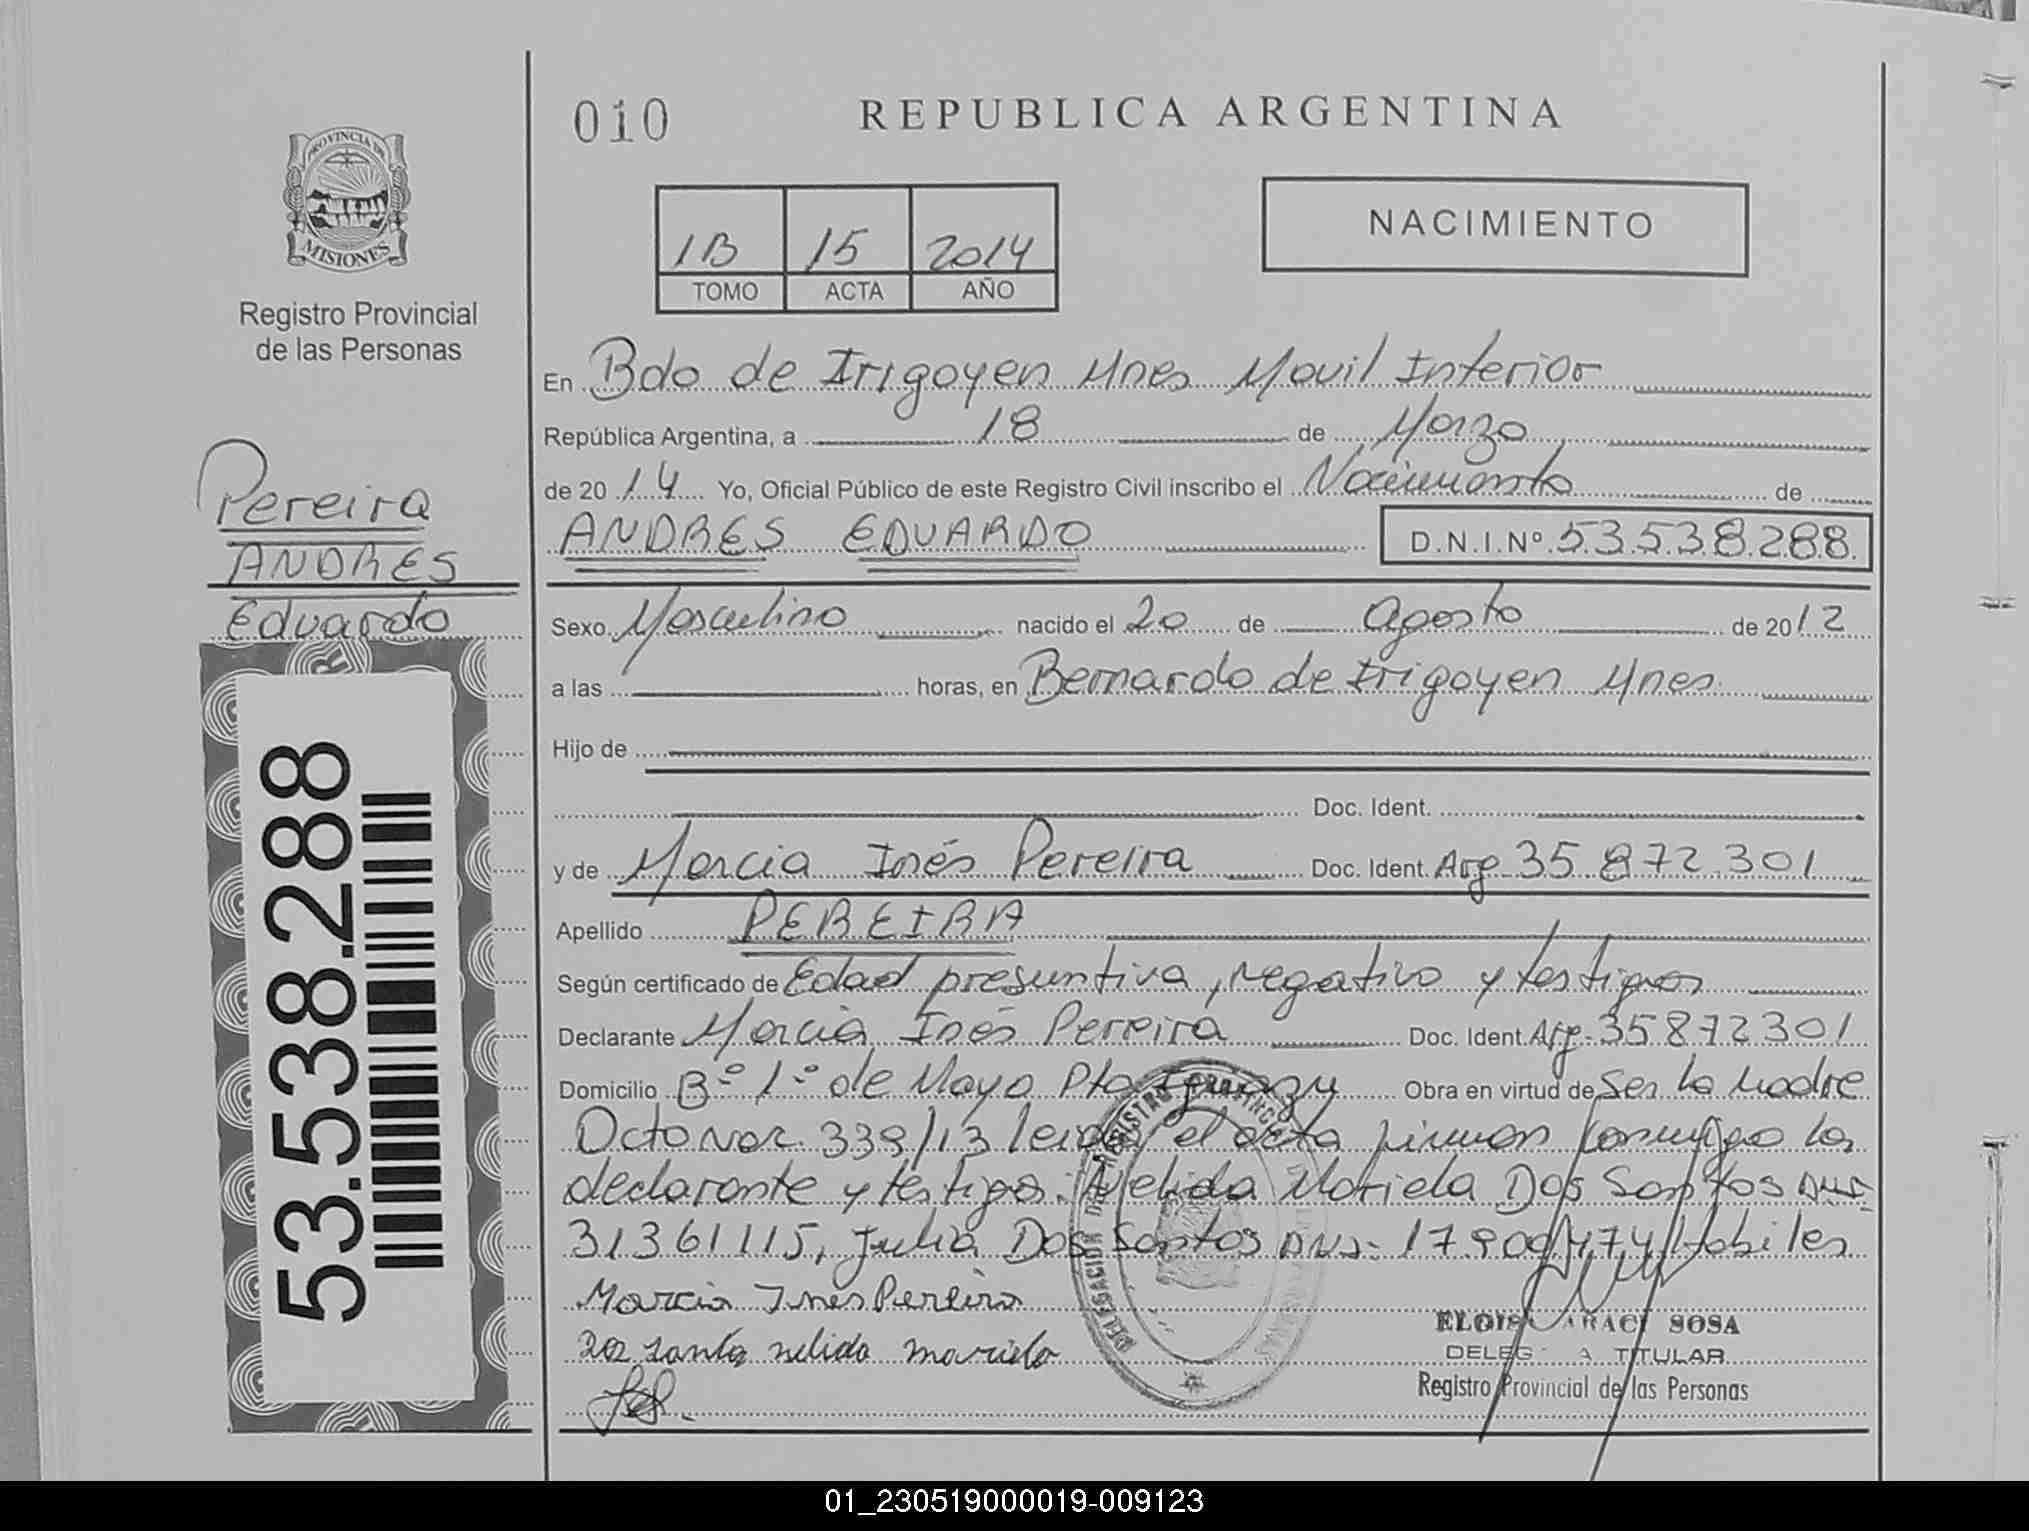 010
REPUBLICA ARGENTINA
PROVINCIA DE
MISIONES
Registro Provincial
de las Personas
1B 15 2014
TOMO ACTA AÑO
NACIMIENTO
En Bdo de Irigoyen Mnes Movil Interior
República Argentina, a 18 de Marzo
de 2014 Yo, Oficial Público de este Registro Civil inscribo el Nacimiento de
ANDRES EDUARDO D.N.I.Nº 53.538.288.
Pereira
ANDRES
Eduardo
53.538.288
Sexo Masculino nacido el 20 de Agosto de 2012
a las horas, en Bernardo de Irigoyen Mnes.
Hijo de
Doc. Ident.
y de Marcia Inés Pereira Doc. Ident. Arg. 35 872.301
Apellido PEREIRA
Según certificado de Edad presuntiva, negativo y testigos
Declarante Marcia Inés Pereira Doc. Ident. Arg. 35872301
Domicilio Bº 1º de Mayo Pto Iguazu Obra en virtud de Ser la Madre
Octo Nor. 339/13 leida el acta firman conmigo la
declarante y testigos. Nelida Mariela Dos Santos DNI
31361115, Julia Dos Santos DNI. 17.909.474 Habiles
Marcia Ines Pereira
dos santos nelida mariela
ELOISA ARACI SOSA
DELEGADA TITULAR
Registro Provincial de las Personas
01_230519000019-009123